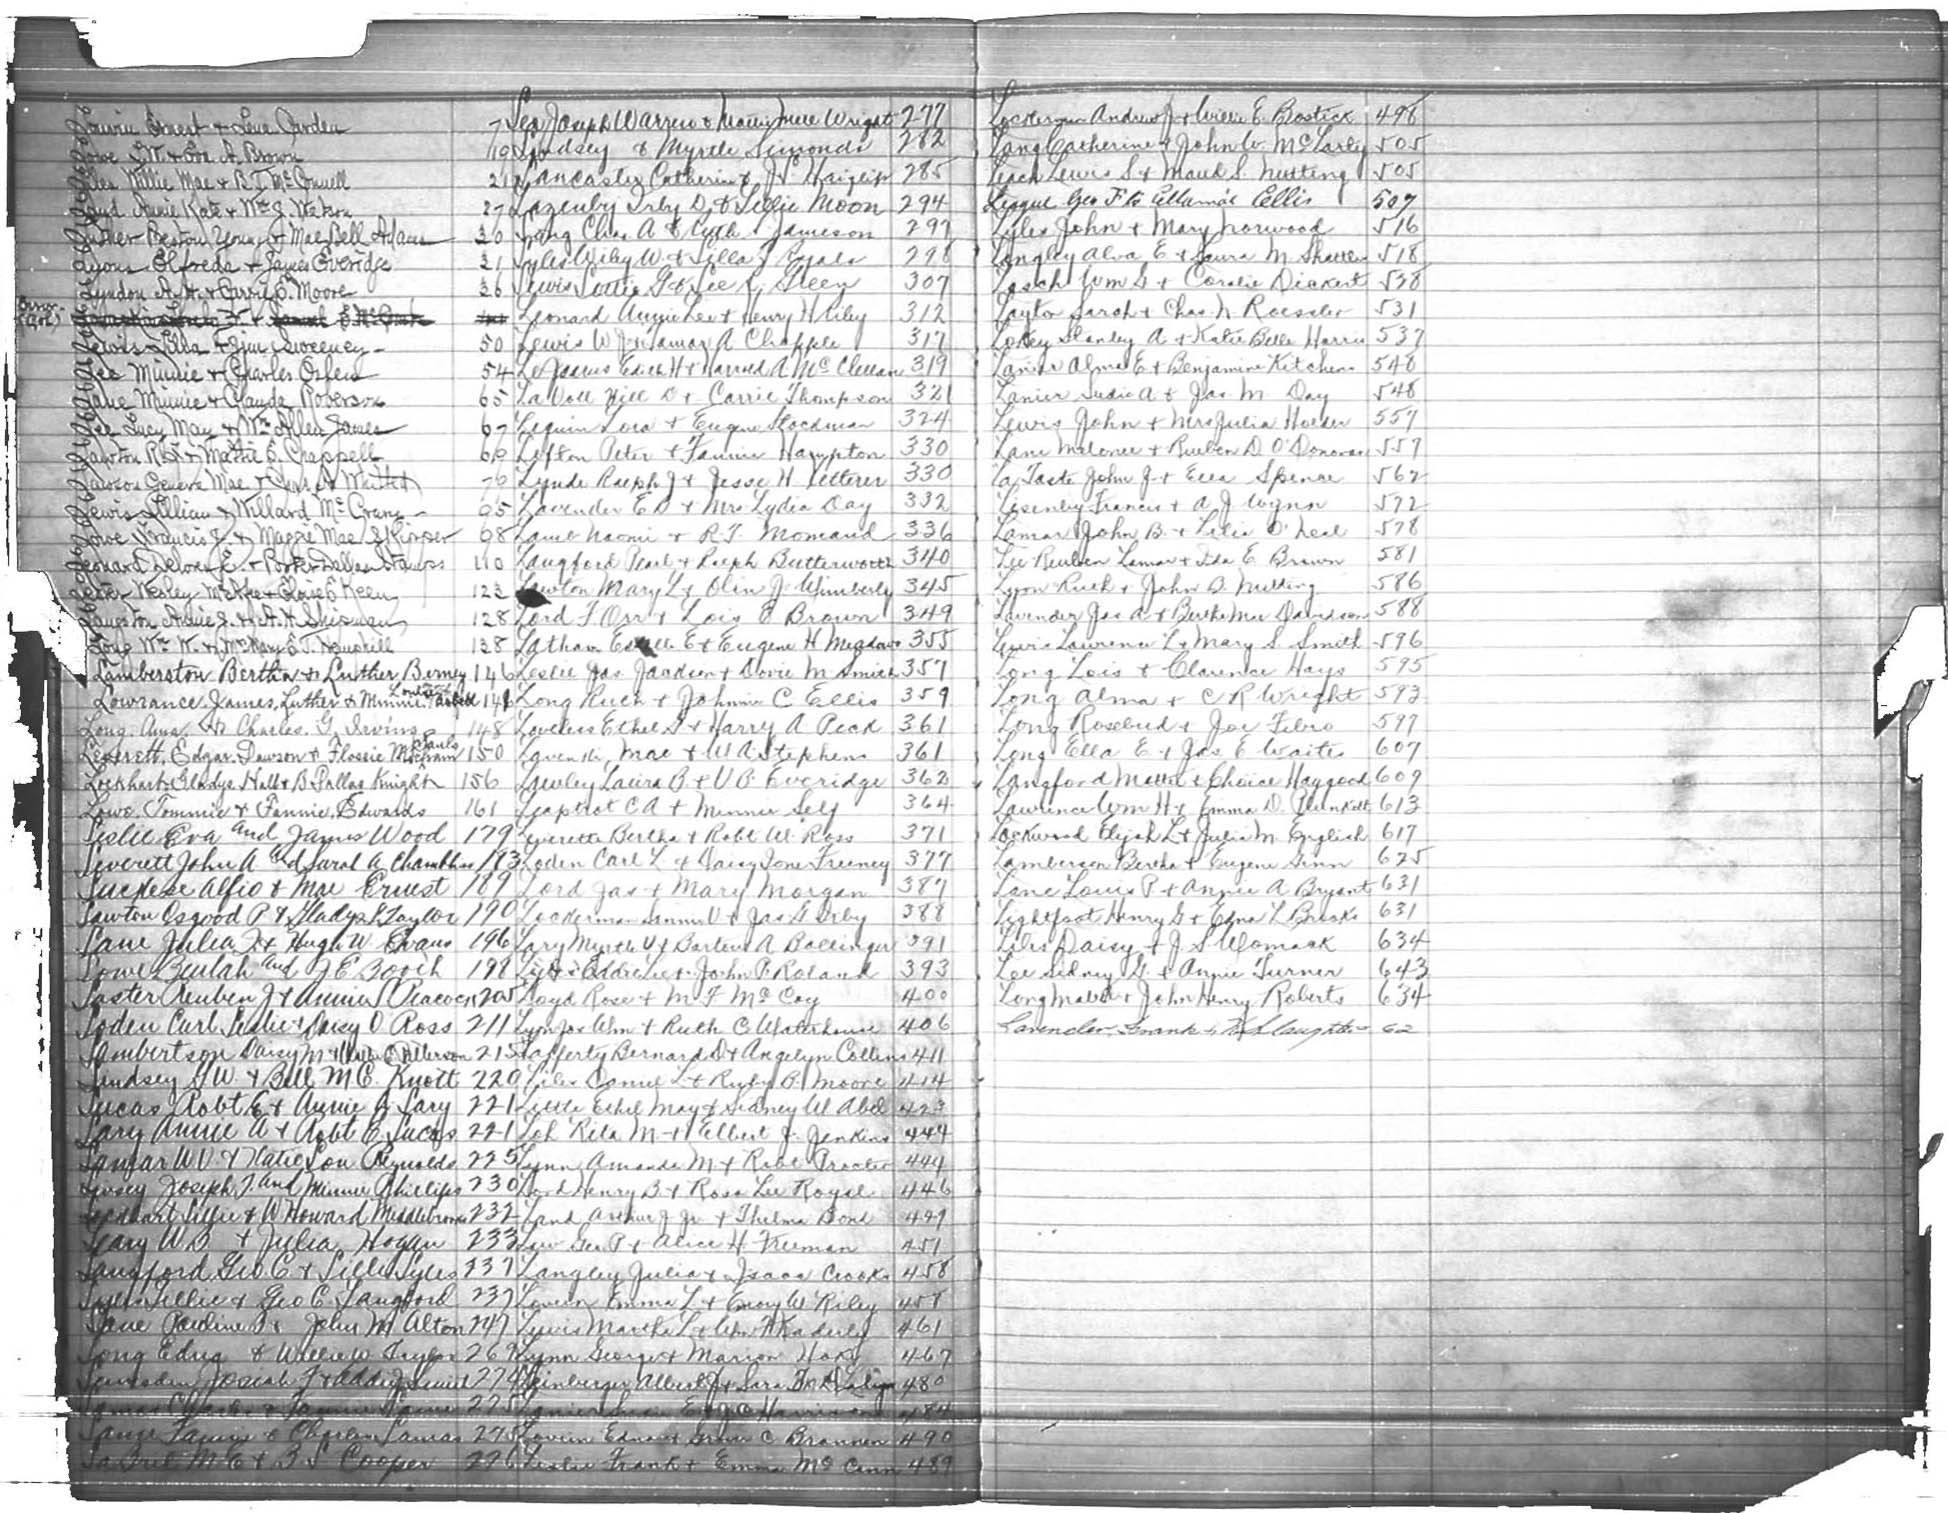 Ernest & Lena Carden 7
Lowe & Eva A. Brown 19
Willie Mae & B.T. McConnell 21
Annie Kate & Wm J. Watson 27
Luther Young & Mae Bell Adams 30
Lyons Elfreda & James Everidge 31
Lyndon A.H. & Carrie E. Moore 36
Error
Lewis Lilla & Jim Sweeney 50
Lee Minnie & Charles 54
Lane Minnie & Claude Roberson 65
Lee Lucy May & Wm Allen James 67
Lawton & Mattie E. Chappell 69
Lawson Geneva Mae & 76
Lewis Lillian & Willard McCrany 95
Lowe Francis J. & Maggie Mae Skipper 98
Leonard & 110
Wesley & Elosie E Keen 123
Langston Annie J. & A.H. 128
Long Wm W. & Mrs Mary E.T. Hemphill 138
Lamberston Bertha & Luther Berney 146
Lowrance, James, Luther & Minnie Louise 148
Long, Anna, & Charles. G. Irvins 148
Leverett, Edgar. Dawson & Flossie 150
Lockhart Gladys Hall & B. Dallas Knight 156
Lowe. Tommie & Fannie. Edwards 161
Leslie Eva and James Wood 179
Leverett John A and Sarah A. Chambliss 183
Lucchese Alfio & Mae Ernest 189
Lawton Osgood P. & Gladys L. Taylor 190
Lane Julia & Hugh W. Evans 196
Lowe Beulah and J E Booth 198
Laster Reuben J & Annie Peacock 205
Loden Carl Leslie & Daisy O Ross 211
Lambertson Daisy M & Patterson 215
Lindsey G W. & Bell M C. Knott 220
Lucas Robt E & Annie A Lary 221
Lary Annie A & Robt E. Lucas 221
Lamar W D. & Katie Lou Reynolds 225
Livsey Joseph T. and Minnie Phillips 230
Lockhart Lillie & W Howard Middlebrooks 232
Leary W.B. & Julia Hogan 233
Langford Geo C & Lillie Lyles 237
Lyles Lillie & Geo C. Langford 237
Lane Pauline & John M Alton 247
Long Edna & Willie W. Taylor 269
Lumsden Josiah F & Addie 274
Lamar Charles & Fannie 275
Fannie & Charles Lamar 275
M E & B S Cooper 276
Leo Joseph Warren & Mattie Mell Wright 277
Lindsey & Myrtle Simonds 282
Lancaster Catherine & J.S. Haizlip 285
Lazenby Irby D. & Lillie Moon 294
Long Chas. A & Ruth Jameson 297
Lyles Wiley W. & Lilla J 298
Lewis Lottie G & Lee 307
Leonard Annie Lee & Henry H Riley 312
Lewis W J & Tamar A Chapple 317
Edith H & Harold A McClellan 319
La Voll Hill D & Carrie Thompson 321
Lequin Lora & Eugene Stockman 324
Lofton Peter & Fannie Hampton 330
Lynde Ralph J & Jesse H Vetterer 330
Lavender E D & Mrs Lydia Day 332
Lamb Naomi & R T. Momand 336
Langford Pearl & Ralph Butterworth 340
Lawton Mary L & Olin J. Wimberly 345
Lord T Orr & Lois E Brown 349
Latham E & Eugene H Meadows 355
Leslie Jas Jackson & Dovie M. Smith 357
Long Ruth & Johnnie C Ellis 359
Loveless Ethel & Harry A Peck 361
Mae & W A Stephens 361
Lawley Laura B & V B Everidge 362
Leaptrot C A & Minnie Self 364
Leverette Bertha & Robt W. Ross 371
Loden Carl L. & Daisy Jone Freeney 377
Lord Jas & Mary Morgan 387
Lockerman Annie V & Jas G Irby 388
Lary Myrtle V & Barlow A Ballinger 391
Eddie Lee & John P. Roland 393
Loyd Rose & M F McCoy 400
Wm & Ruth C Waterhouse 406
Lafferty Bernard D & Angelyn Collins 411
Liles Daniel L & Ruby B. Moore 414
Little Ethel May & Sidney W Abel 423
Loh Rita M & Elbert J. Jenkins 444
Lynn Amanda M & Robt Proctor 444
Lord Henry B & Rosa Lee Royal 446
Land Arthur J Jr & Thelma Bond 449
Law Geo P & Alice H. Freeman 451
Langley Julia & Isaac Crooks 458
Lovein Emma L & Emory W Riley 458
Lewis Martha L & Wm F. Kaderly 461
Lynn George & Marion 467
Leinberger Albert J & Sara 480
Lanier Susie E & J C Harrison 484
Lovein Edna & Grover C Brannen 490
Leslie Frank & Emma McCann 489
Lockerman Andrew J & Willie E Bostick 498
Lang Catherine & John W. McCarley 505
Leach Lewis S & Maud S. Nutting 505
League Geo F to Ellamae Ellis 507
Lyles John & Mary Norwood 516
Longley Alva E & Laura M. 518
Losch Wm G & Coralie Dickert 538
Layton Sarah & Chas. N Roessler 531
Lokey Stanley A & Katie Belle Harris 537
Lanier Alma E & Benjamine Kitchens 548
Lanier Sudie A & Jas. M. Day 548
Lewis John & Mrs Julia Holder 557
Lane Melonee & Reuben D O'Donovan 557
La Taste John J & Ella Spence 562
Lisenby Francis & A J Wynn 572
Lamar John B. & Lilia O'Neal 578
Lee Reuben Lamar & Ida E Brown 581
Lyon Ruth & John B. Melding 586
Lavender Jas A & Bertha Mae Davidson 588
Lewis Lawrence L & Mary S. Smith 596
Long Lois & Clarence Hays 595
Long Alma & C R Wright 593
Long Rosebud & Joe Febro 597
Long Ella E. & Jas E Waites 607
Langford Mattie & Choice Haygood 609
Lawrence Wm H & Emma D. Plunkett 613
Lockwood Elijah L & Julia M. English 617
Lamberson Bertha & Eugene Ginn 625
Lane Louis P & Annie A Bryant 631
Lightfoot Henry G & Edna L Brooks 631
Liles Daisy & J S Womack 634
Lee Sidney G. & Annie Turner 643
Long Mable & John Henry Roberts 634
Lavender, Frank & Slaughter 62